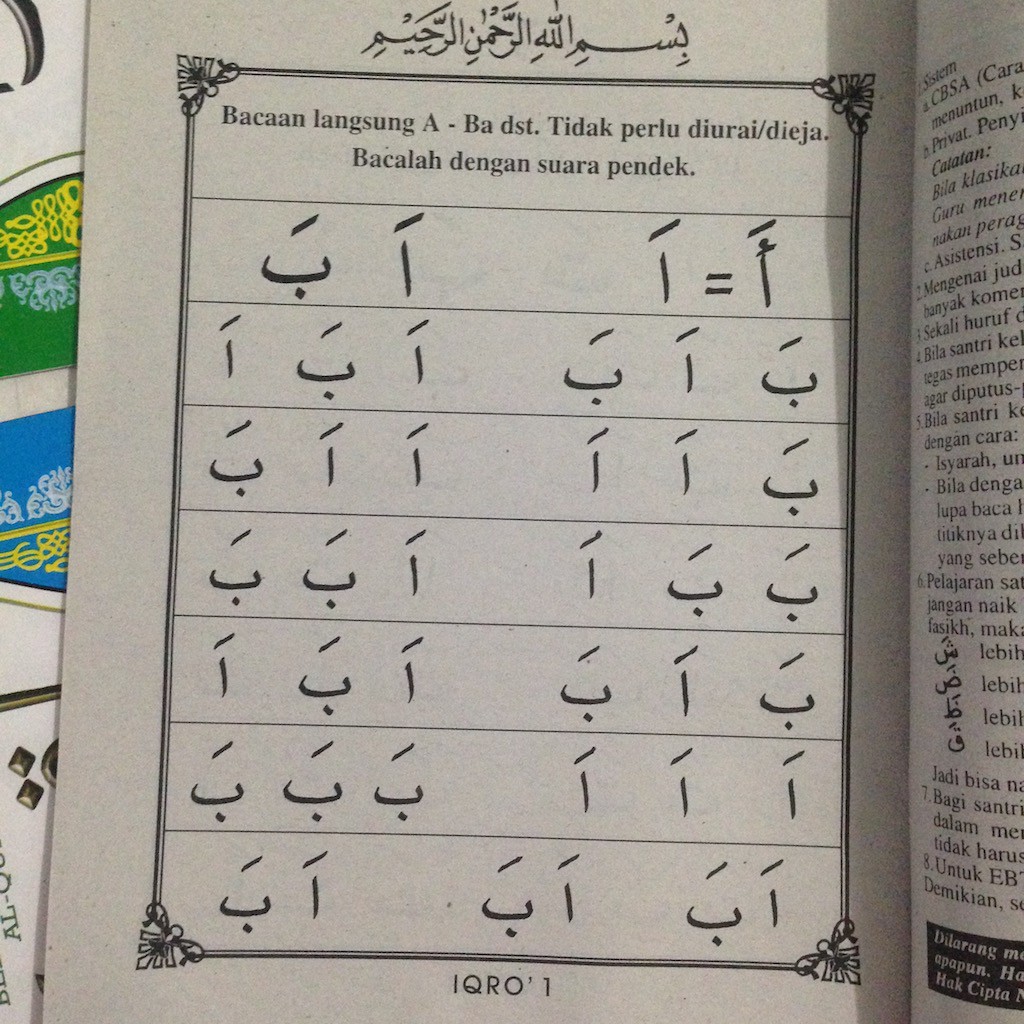 بِسْمِ اللهِ الرَّحْمٰنِ الرَّحِيْمِ
Bacaan langsung A - Ba dst. Tidak perlu diurai/dieja.
Bacalah dengan suara pendek.
أَ = اَ اَ بَ
بَ اَ بَ اَ بَ اَ
بَ اَ اَ اَ اَ بَ
بَ بَ اَ اَ بَ بَ
بَ اَ بَ اَ بَ اَ
اَ اَ اَ بَ بَ بَ
اَ بَ اَ بَ اَ بَ
IQRO' 1
Sistem
a. CBSA (Cara
menuntun, k
b. Privat. Peny
Catatan:
Bila klasika
Guru mener
nakan perag
c. Asistensi. S
2. Mengenai jud
banyak komen
3. Sekali huruf d
4. Bila santri kel
tegas memper
agar diputus-
5. Bila santri ke
dengan cara:
- Isyarah, un
- Bila denga
lupa baca h
titiknya dib
yang seben
6. Pelajaran sat
jangan naik
fasikh, maka
lebih
lebih
lebih
lebih
Jadi bisa na
7. Bagi santri
dalam men
tidak harus
8. Untuk EBT
Demikian, se
Dilarang me
apapun. Ha
Hak Cipta
AL-QU